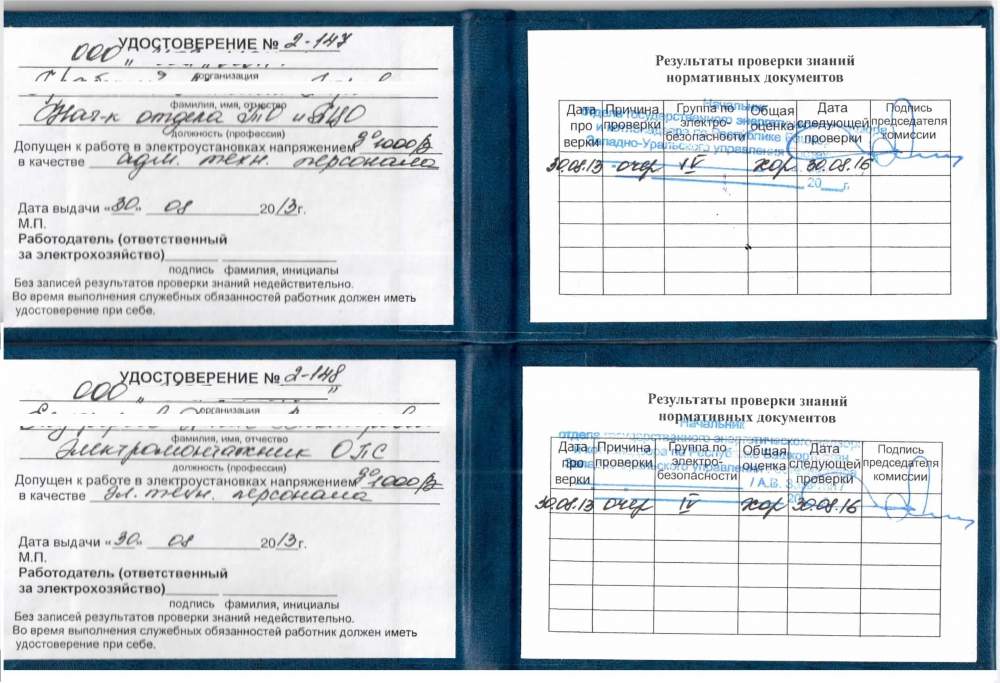 УДОСТОВЕРЕНИЕ № 2-147
ООО "
организация
фамилия, имя, отчество
Нач-к отдела ТО и
должность (профессия)
Допущен к работе в электроустановках напряжением до 1000 В
в качестве адм. техн. персонала
Дата выдачи «30» 08 2013г.
М.П.
Работодатель (ответственный
за электрохозяйство)
подпись фамилия, инициалы
Без записей результатов проверки знаний недействительно.
Во время выполнения служебных обязанностей работник должен иметь
удостоверение при себе.
Результаты проверки знаний
нормативных документов
Начальник
отдела государственного
Западно-Уральского управления
20 г.
Дата проверки Причина проверки Группа по электро-безопасности Общая оценка Дата следующей проверки Подпись председателя комиссии
30.08.13 очер IV хор 30.08.16
УДОСТОВЕРЕНИЕ № 2-148
ООО " "
организация
фамилия, имя, отчество
Электромонтажник ОПС
должность (профессия)
Допущен к работе в электроустановках напряжением до 1000 В
в качестве эл. техн. персонала
Дата выдачи «30» 08 2013г.
М.П.
Работодатель (ответственный
за электрохозяйство)
подпись фамилия, инициалы
Без записей результатов проверки знаний недействительно.
Во время выполнения служебных обязанностей работник должен иметь
удостоверение при себе.
Результаты проверки знаний
нормативных документов
Начальник
отдела государственного энергетического
управления
/ А.В.
20
Дата проверки Причина проверки Группа по электро-безопасности Общая оценка Дата следующей проверки Подпись председателя комиссии
30.08.13 очер IV хор 30.08.16